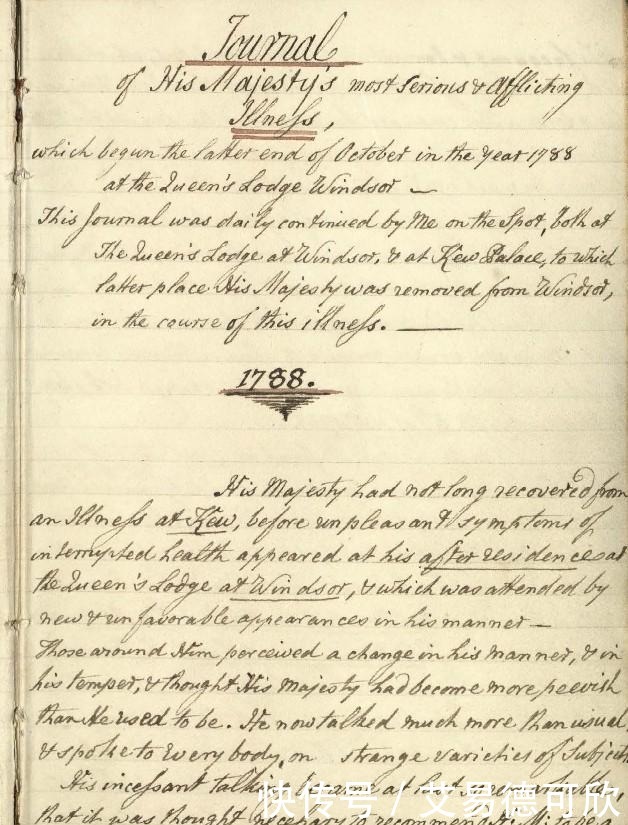 Journal
of His Majesty's most serious & afflicting
Illness,
which begun the latter end of October in the Year 1788
at the Queen's Lodge Windsor —
This Journal was daily continued by Me on the Spot, both at
The Queen's Lodge at Windsor, & at Kew Palace, to which
latter place His Majesty was removed from Windsor,
in the course of this illness. —
1788.
His Majesty had not long recovered from
an Illness at Kew, before unpleasant symptoms of
interrupted health appeared at his after residence at
the Queen's Lodge at Windsor, & which was attended by
new & unfavorable appearances in his manner —
Those around Him perceived a change in his manner, & in
his temper, & thought His Majesty had become more peevish
than He used to be. He now talked much more than usual,
& spoke to every body, on strange varieties of Subjects
His incessant talking became at last so remarkable,
that it was thought necessary to recommend
快传号 / 艾易德可欣